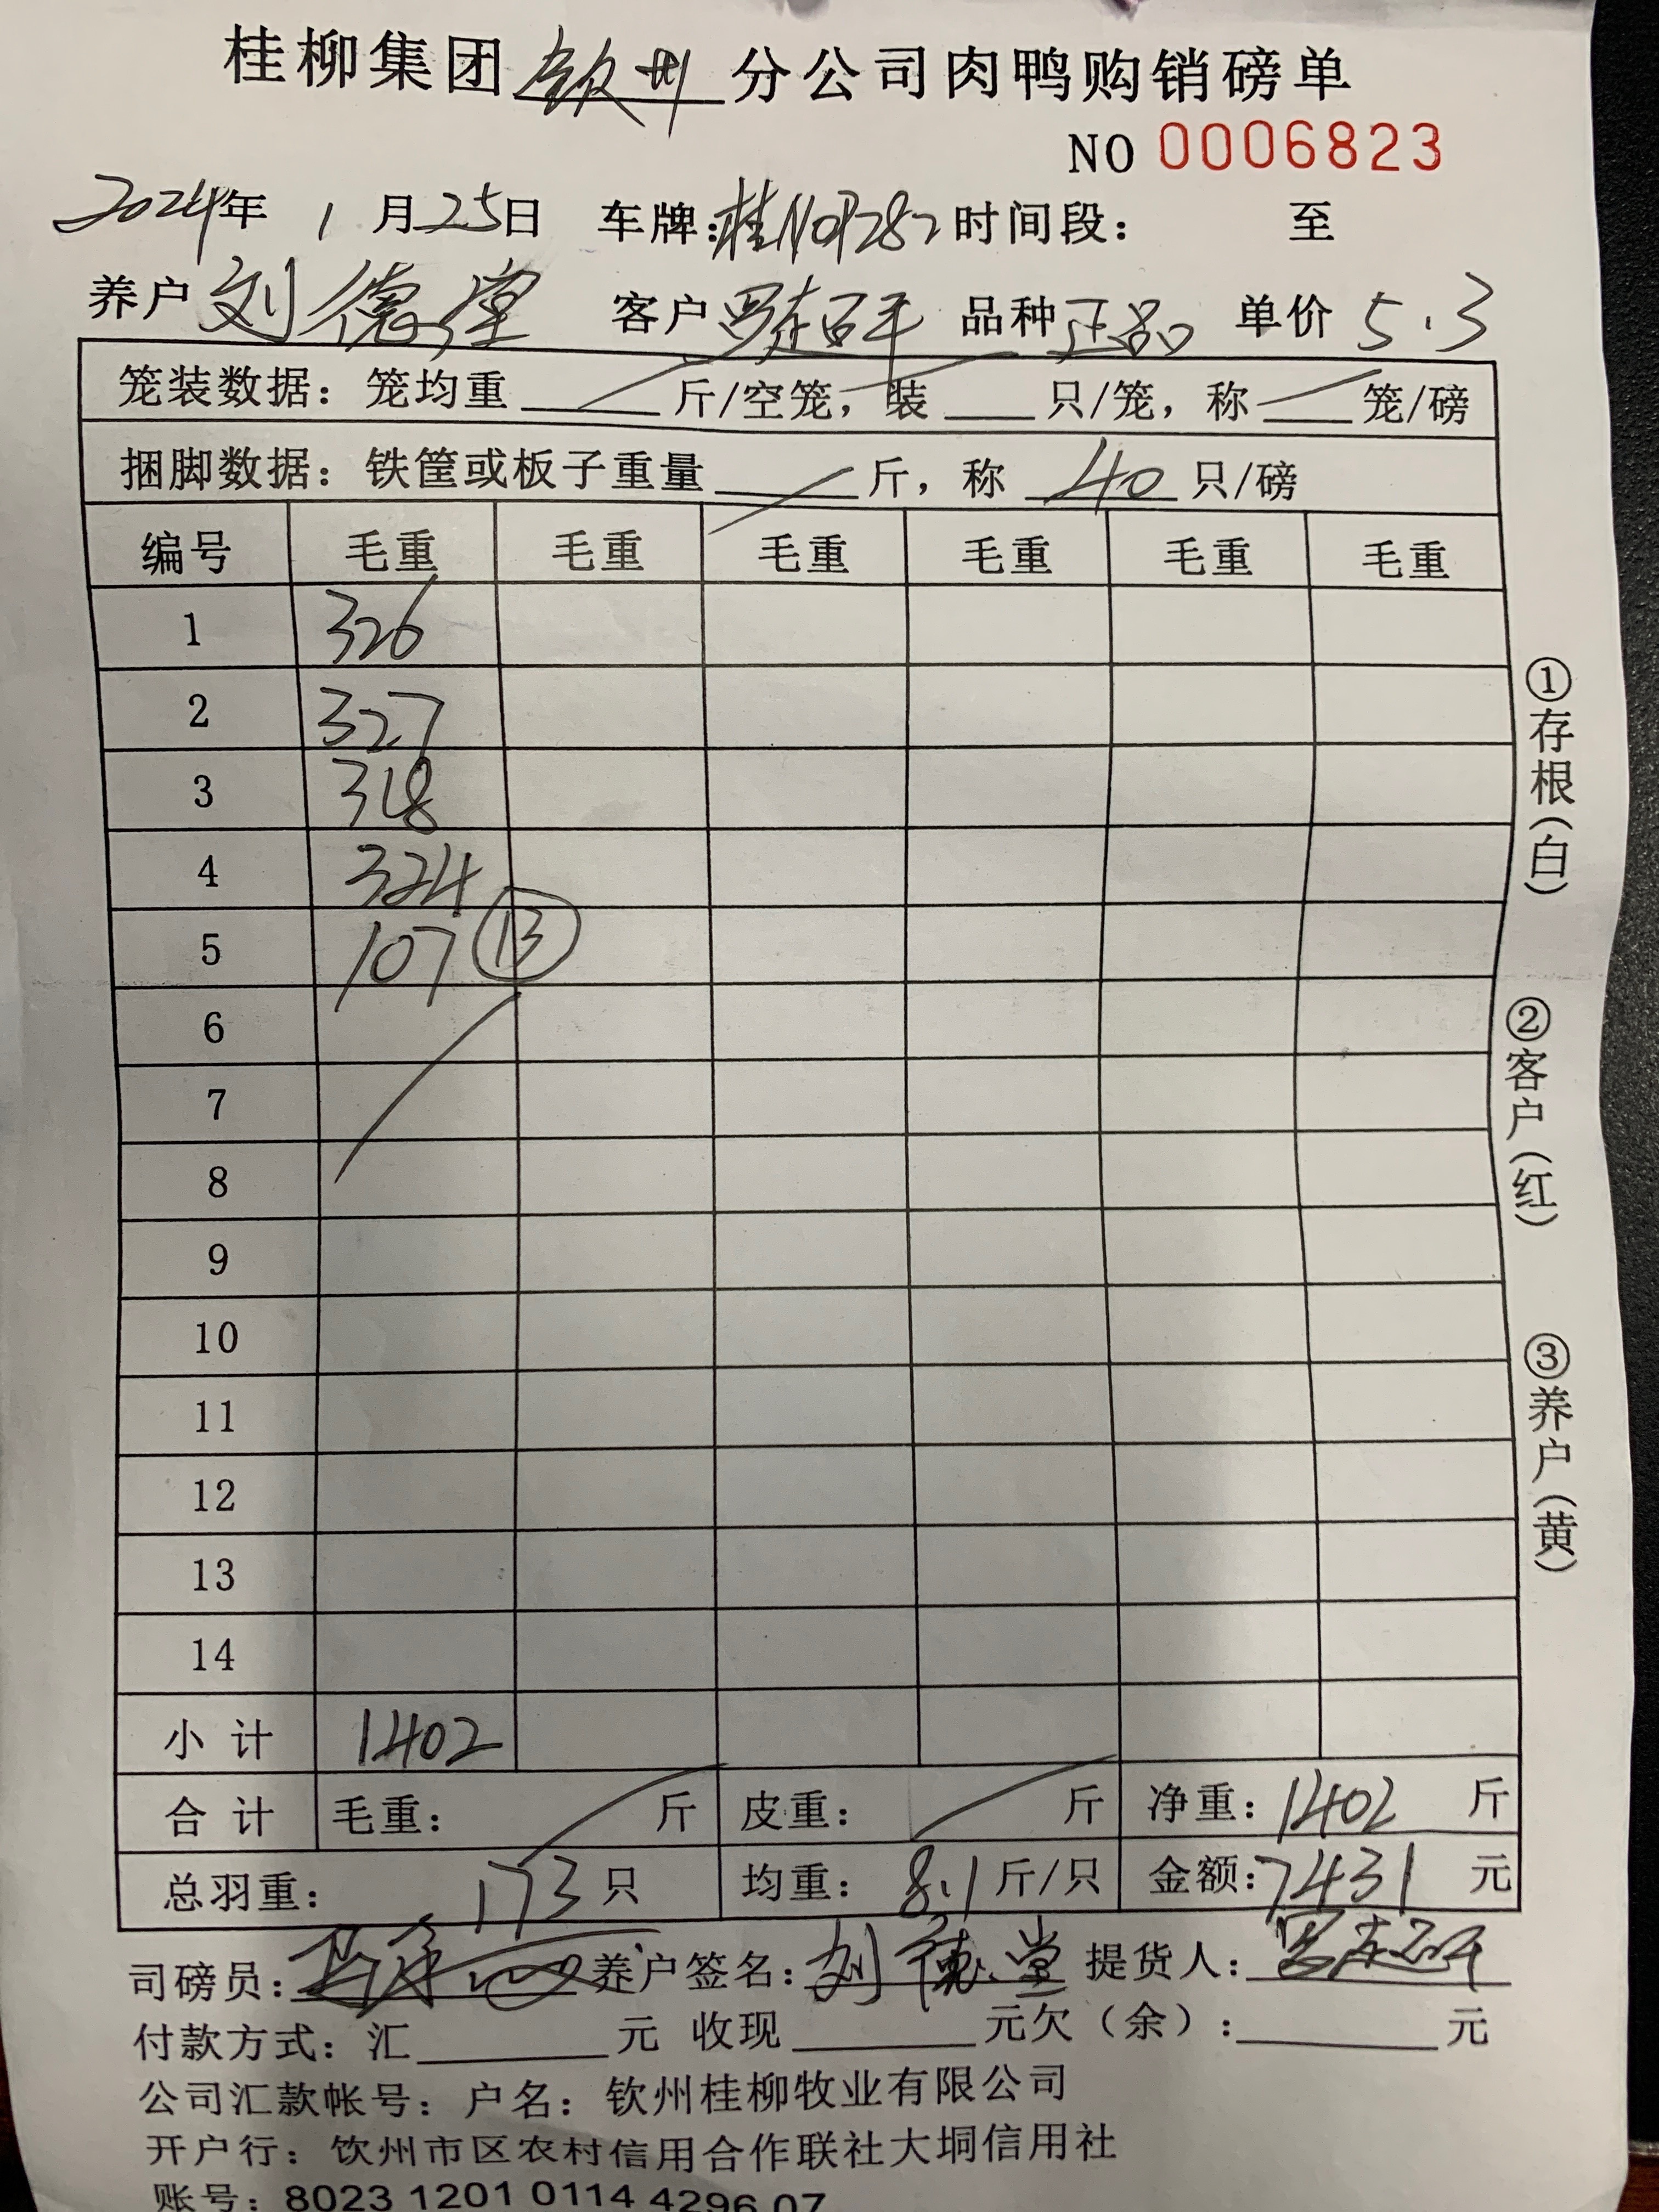 桂柳集团钦州分公司肉鸭购销磅单
NO 0006823
2024年 1月25日 车牌:桂N0P282 时间段: 至
养户 刘德堂 客户 品种 正品 单价 5.3
笼装数据: 笼均重 斤/空笼, 装 只/笼, 称 笼/磅
捆脚数据: 铁筐或板子重量 斤, 称 40 只/磅
编号 毛重 毛重 毛重 毛重 毛重 毛重
1 326
2 327
3 318
4 324
5 107 ⑬
6
7
8
9
10
11
12
13
14
小计 1402
合计 毛重: 斤 皮重: 斤 净重: 1402 斤
总羽重: 173 只 均重: 8.1 斤/只 金额: 7431 元
司磅员: 养户签名: 刘德堂 提货人:
付款方式: 汇 元 收现 元欠(余): 元
公司汇款帐号: 户名: 钦州桂柳牧业有限公司
开户行: 钦州市区农村信用合作联社大垌信用社
账号: 8023 1201 0114 4296 07
①存根(白)
②客户(红)
③养户(黄)